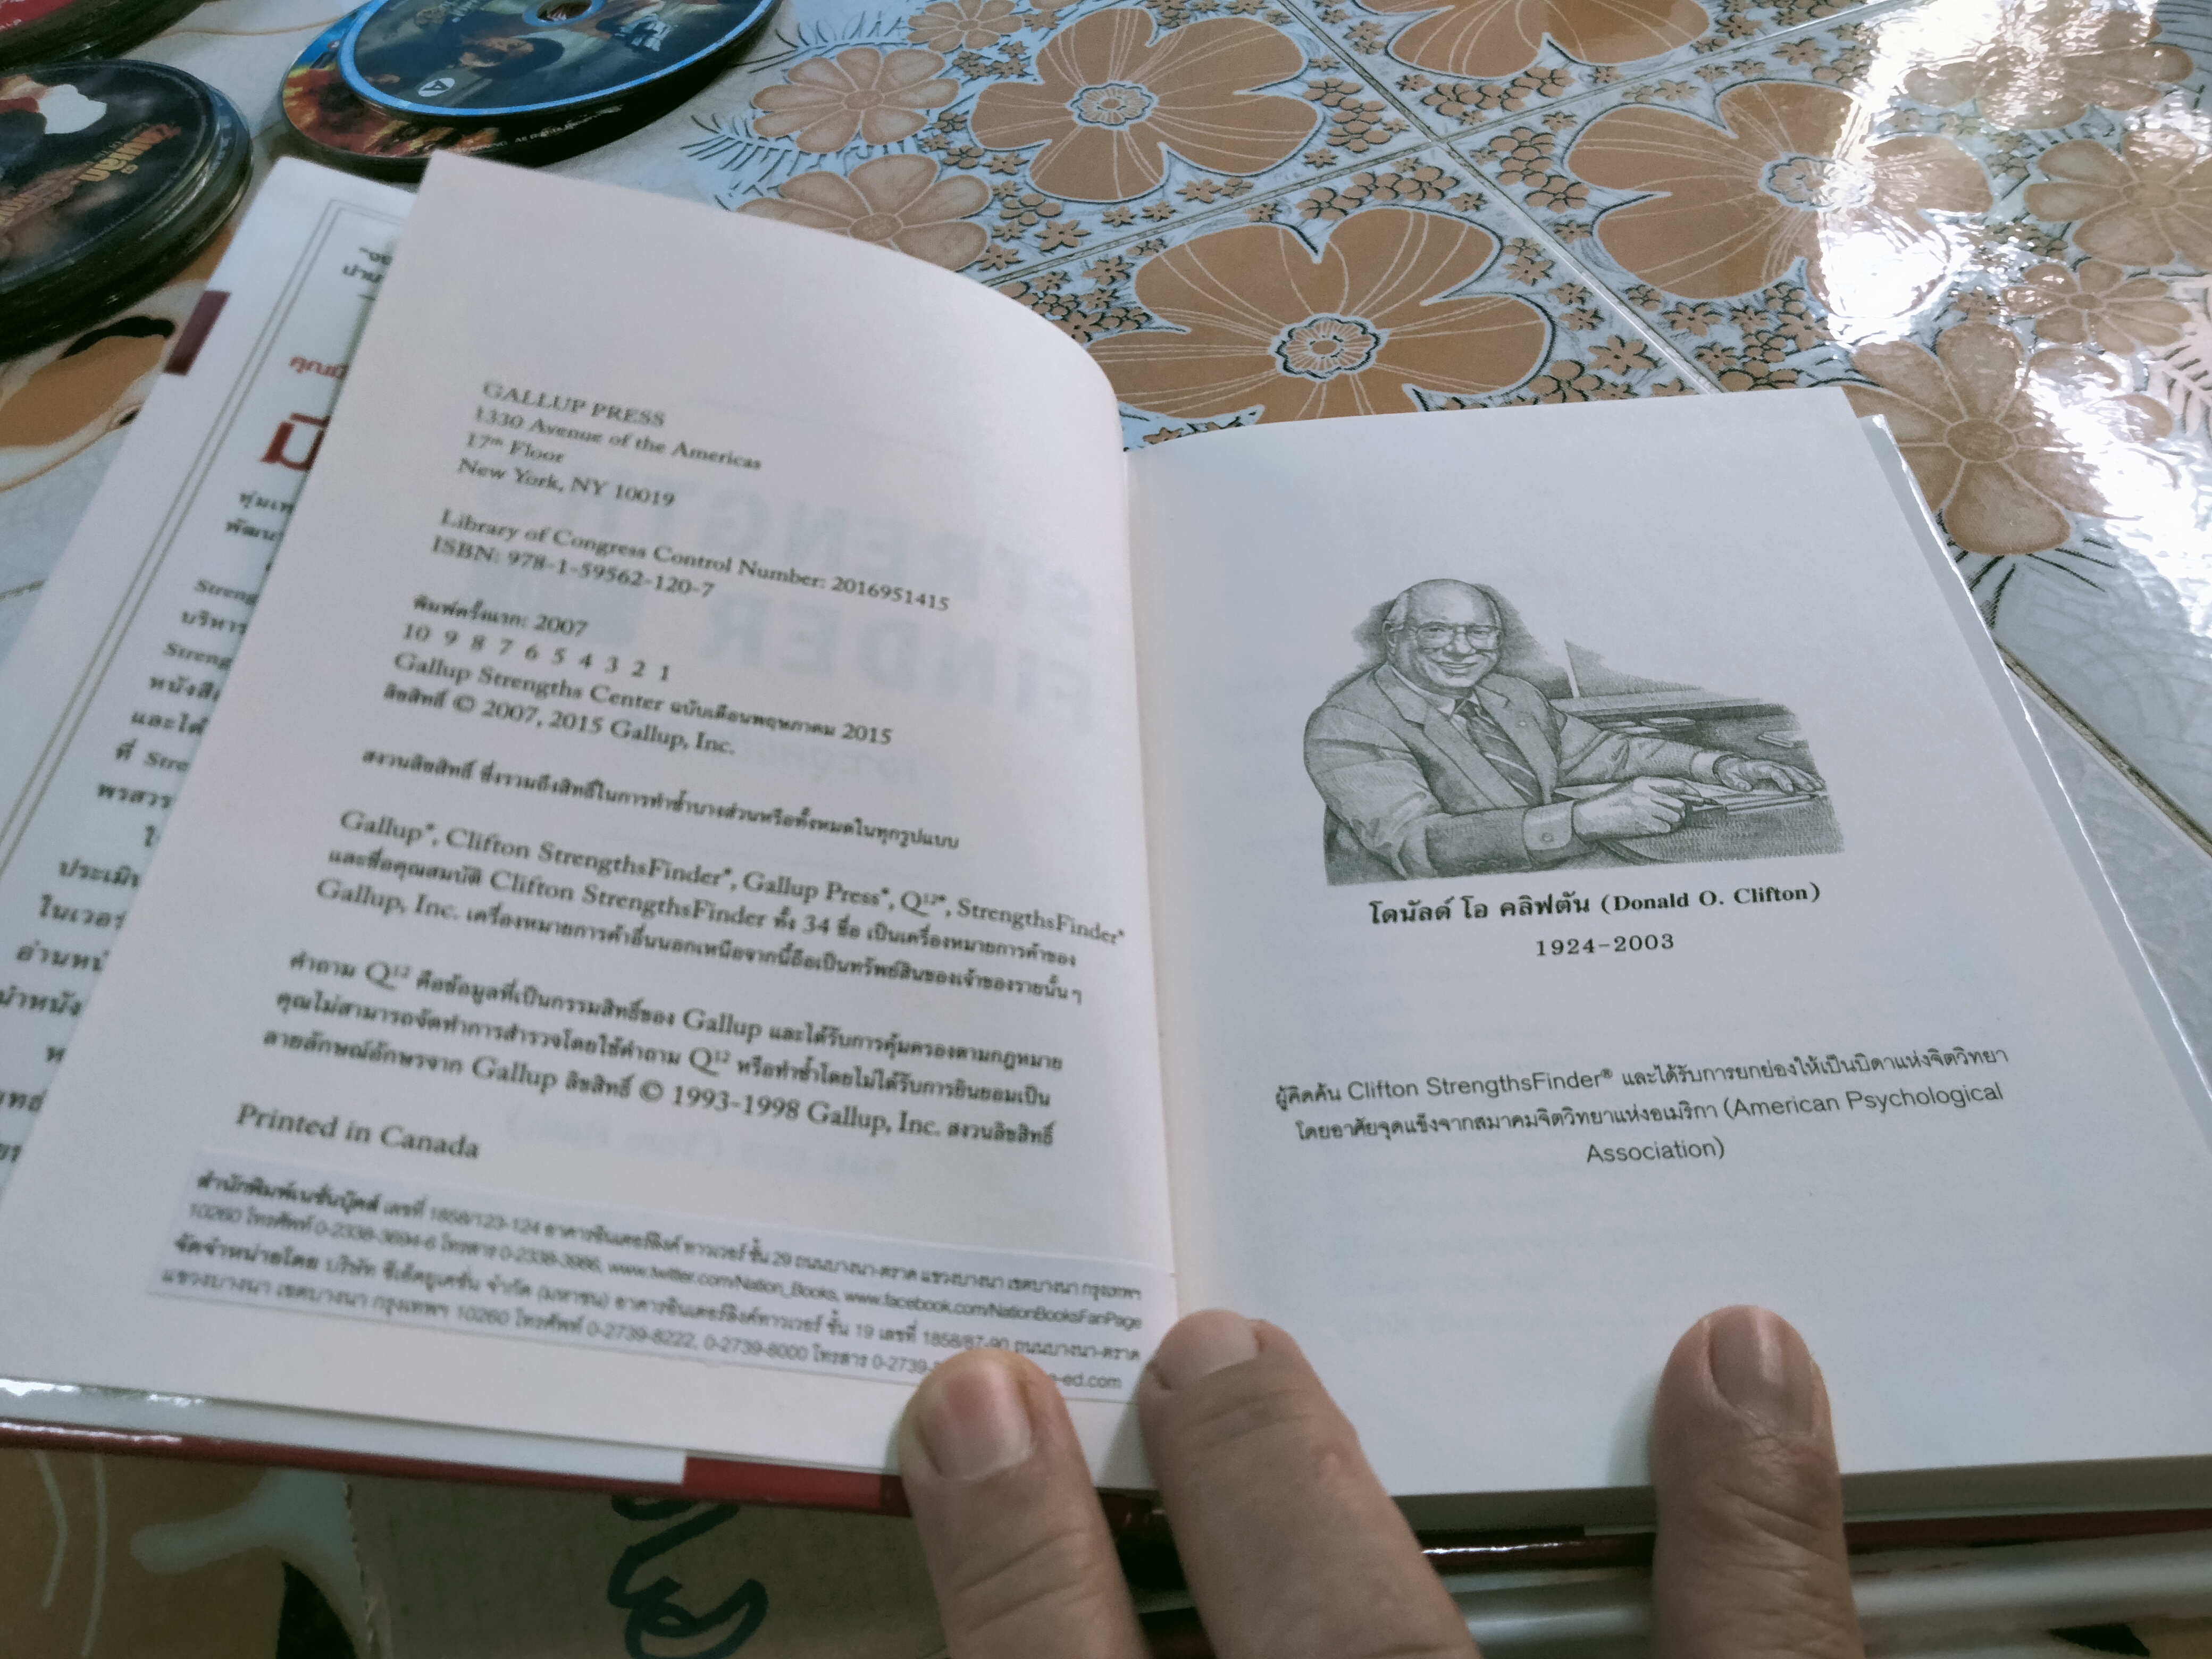 GALLUP PRESS
1330 Avenue of the Americas
17th Floor
New York, NY 10019
Library of Congress Control Number: 2016951415
ISBN: 978-1-59562-120-7
พิมพ์ครั้งแรก: 2007
10 9 8 7 6 5 4 3 2 1
Gallup Strengths Center ฉบับเดือนพฤษภาคม 2015
ลิขสิทธิ์ © 2007, 2015 Gallup, Inc.
สงวนลิขสิทธิ์ ซึ่งรวมถึงสิทธิ์ในการทำซ้ำบางส่วนหรือทั้งหมดในทุกรูปแบบ
Gallup®, Clifton StrengthsFinder®, Gallup Press®, Q12®, StrengthsFinder®
และชื่อคุณสมบัติ Clifton StrengthsFinder ทั้ง 34 ชื่อ เป็นเครื่องหมายการค้าของ
Gallup, Inc. เครื่องหมายการค้าอื่นนอกเหนือจากนี้ถือเป็นทรัพย์สินของเจ้าของรายนั้น ๆ
คำถาม Q12 คือข้อมูลที่เป็นกรรมสิทธิ์ของ Gallup และได้รับการคุ้มครองตามกฎหมาย
คุณไม่สามารถจัดทำการสำรวจโดยใช้คำถาม Q12 หรือทำซ้ำโดยไม่ได้รับการยินยอมเป็น
ลายลักษณ์อักษรจาก Gallup ลิขสิทธิ์ © 1993-1998 Gallup, Inc. สงวนลิขสิทธิ์
Printed in Canada
สำนักพิมพ์เนชั่นบุ๊คส์ เลขที่ 1858/123-124 อาคารอินเตอร์ลิงค์ ทาวเวอร์ ชั้น 29 ถนนบางนา-ตราด แขวงบางนา เขตบางนา กรุงเทพฯ
10260 โทรศัพท์ 0-2338-3694-6 โทรสาร 0-2338-3986, www.twitter.com/Nation_Books, www.facebook.com/NationBooksFanPage
จัดจำหน่ายโดย บริษัท ซีเอ็ดยูเคชั่น จำกัด (มหาชน) อาคารอินเตอร์ลิงค์ทาวเวอร์ ชั้น 19 เลขที่ 1858/87-90 ถนนบางนา-ตราด
แขวงบางนา เขตบางนา กรุงเทพฯ 10260 โทรศัพท์ 0-2739-8222, 0-2739-8000 โทรสาร 0-2739-
โดนัลด์ โอ คลิฟตัน (Donald O. Clifton)
1924-2003
ผู้คิดค้น Clifton StrengthsFinder® และได้รับการยกย่องให้เป็นบิดาแห่งจิตวิทยา
โดยอาศัยจุดแข็งจากสมาคมจิตวิทยาแห่งอเมริกา (American Psychological
Association)